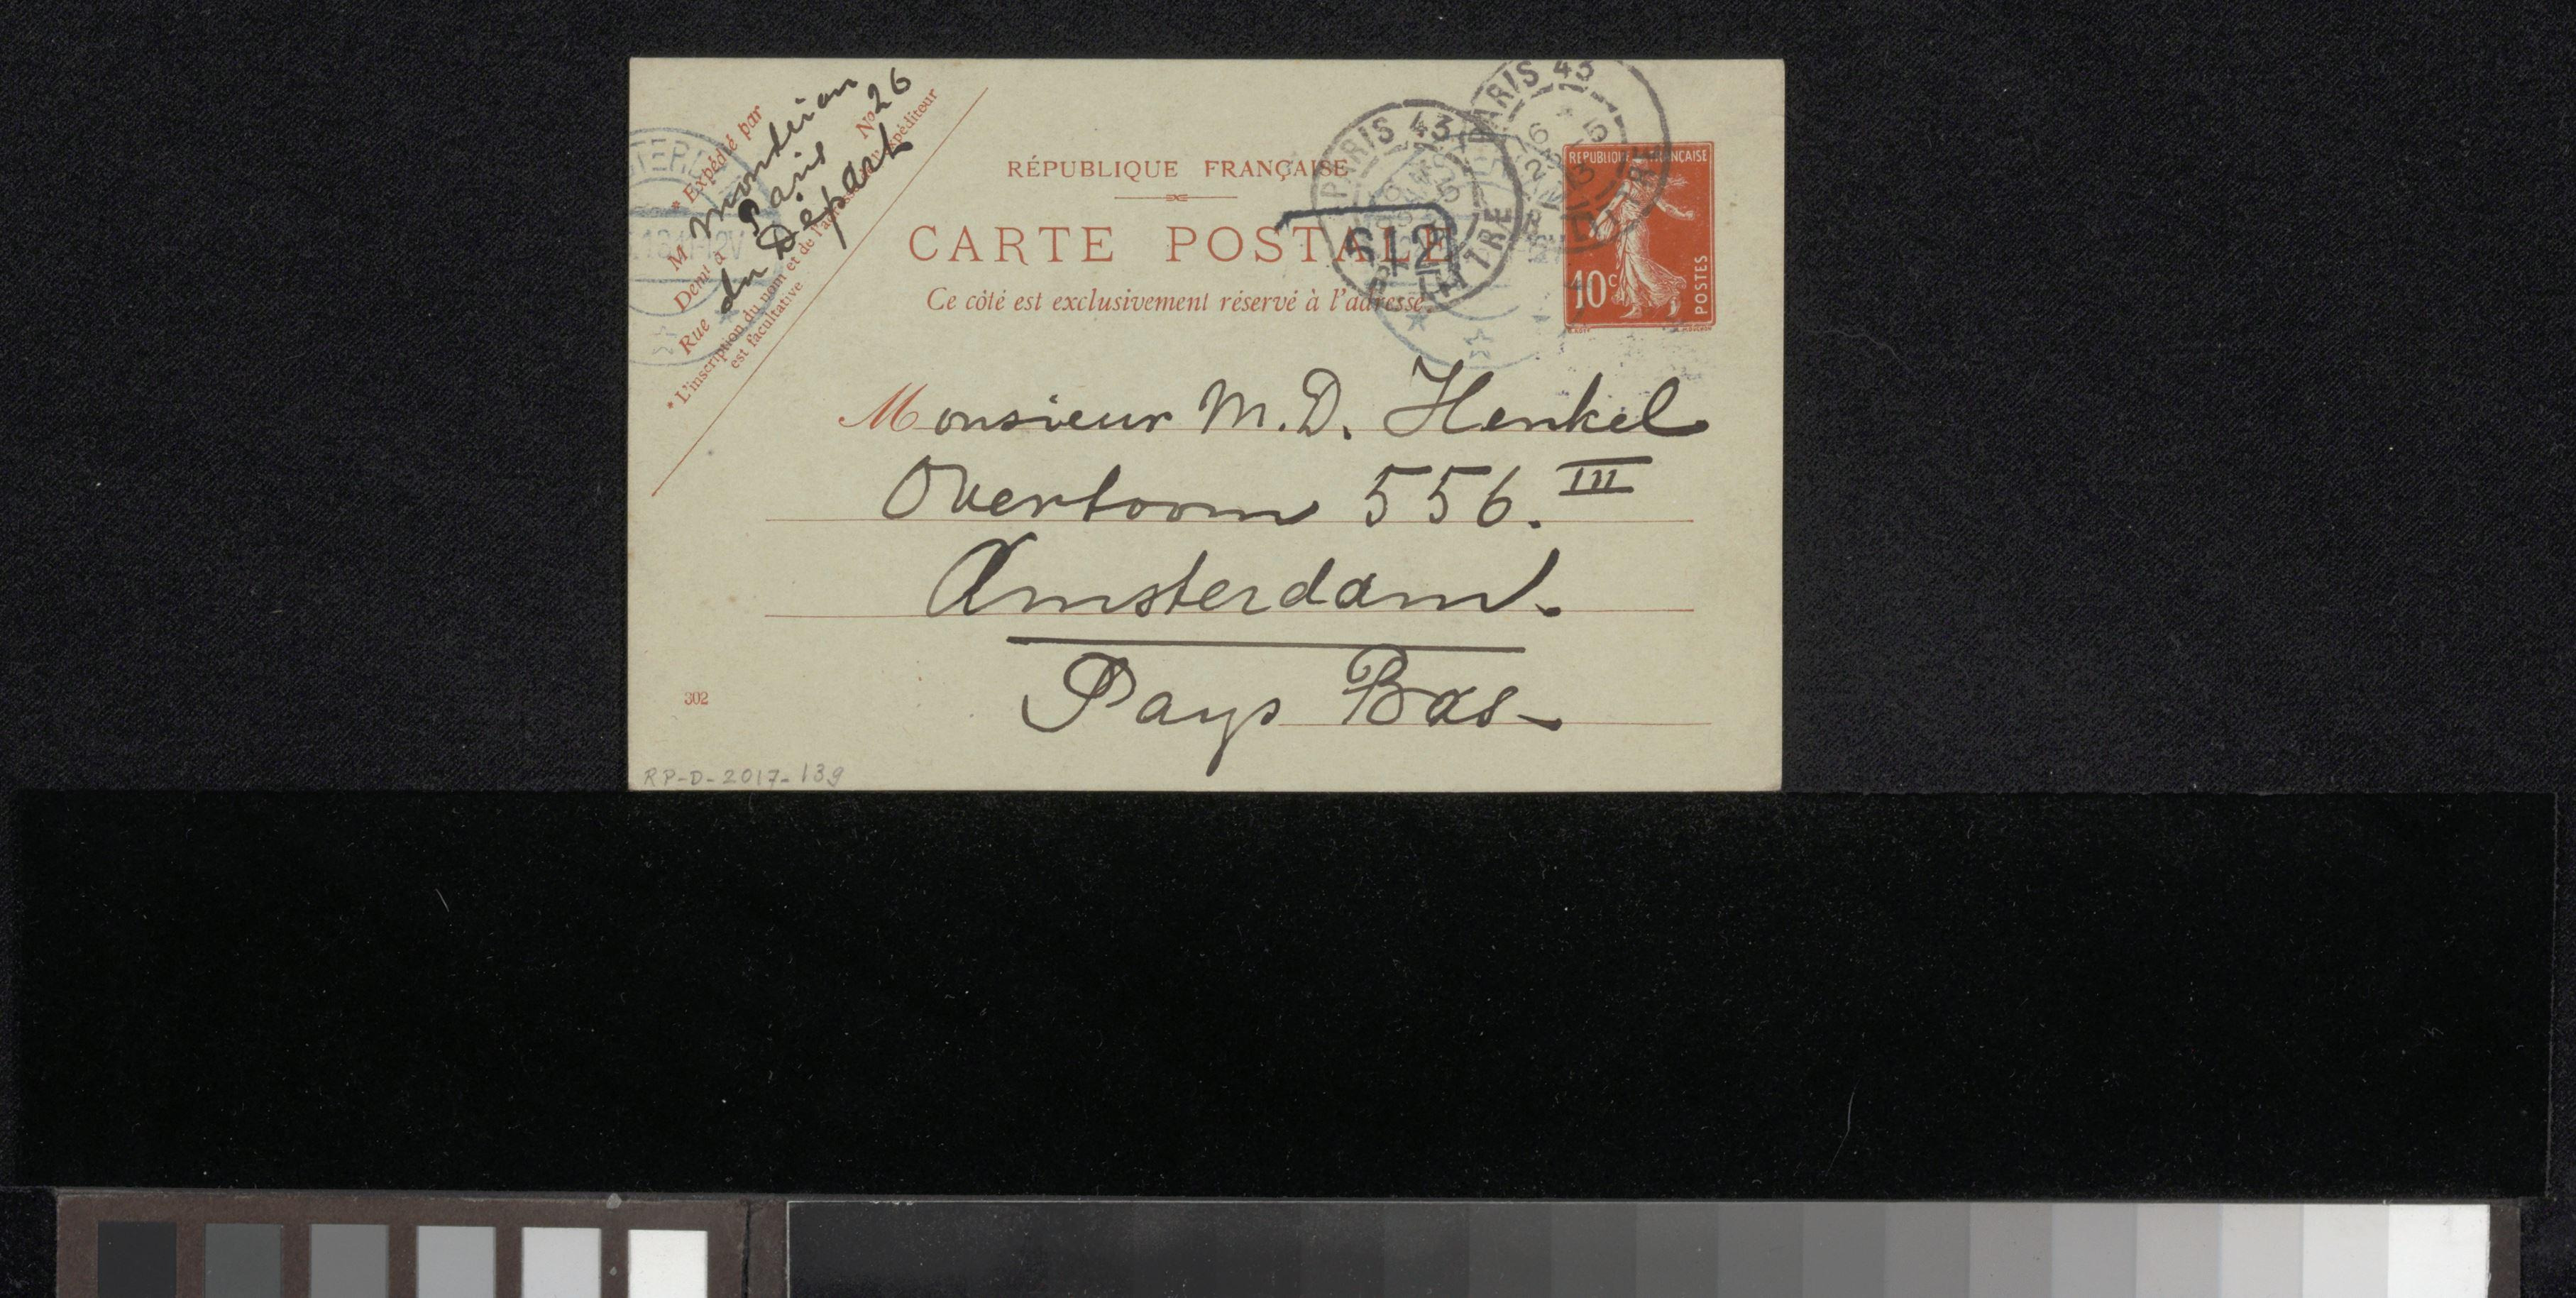 * Expédié par
M Mondrian
Demt à Paris
Rue du Départ No 26
* L'inscription du nom et de l'adresse de l'expéditeur
est facultative
RÉPUBLIQUE FRANÇAISE
CARTE POSTALE
Ce côté est exclusivement réservé à l'adresse.
PARIS 43
PARIS 43
612
REPUBLIQUE FRANÇAISE
10c
POSTES
Monsieur M. D. Henkel
Overtoom 556. III
Amsterdam.
Pays Bas
302
RP-D-2017-139